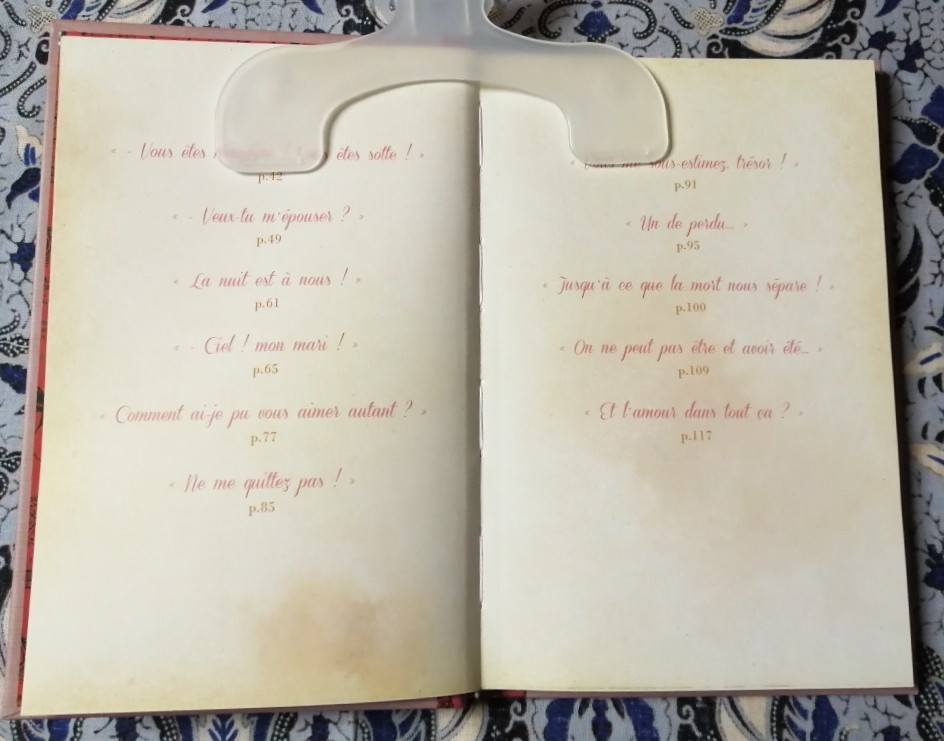 « - Vous êtes ! êtes sotte ! »
p.42
« - Veux-tu m'épouser ? »
p.49
« La nuit est à nous ! »
p.61
« - Ciel ! mon mari ! »
p.65
« Comment ai-je pu vous aimer autant ? »
p.77
« Ne me quittez pas ! »
p.85
« me sous-estimez, trésor ! »
p.91
« Un de perdu... »
p.95
« Jusqu'à ce que la mort nous sépare ! »
p.100
« On ne peut pas être et avoir été... »
p.109
« Et l'amour dans tout ça ? »
p.117